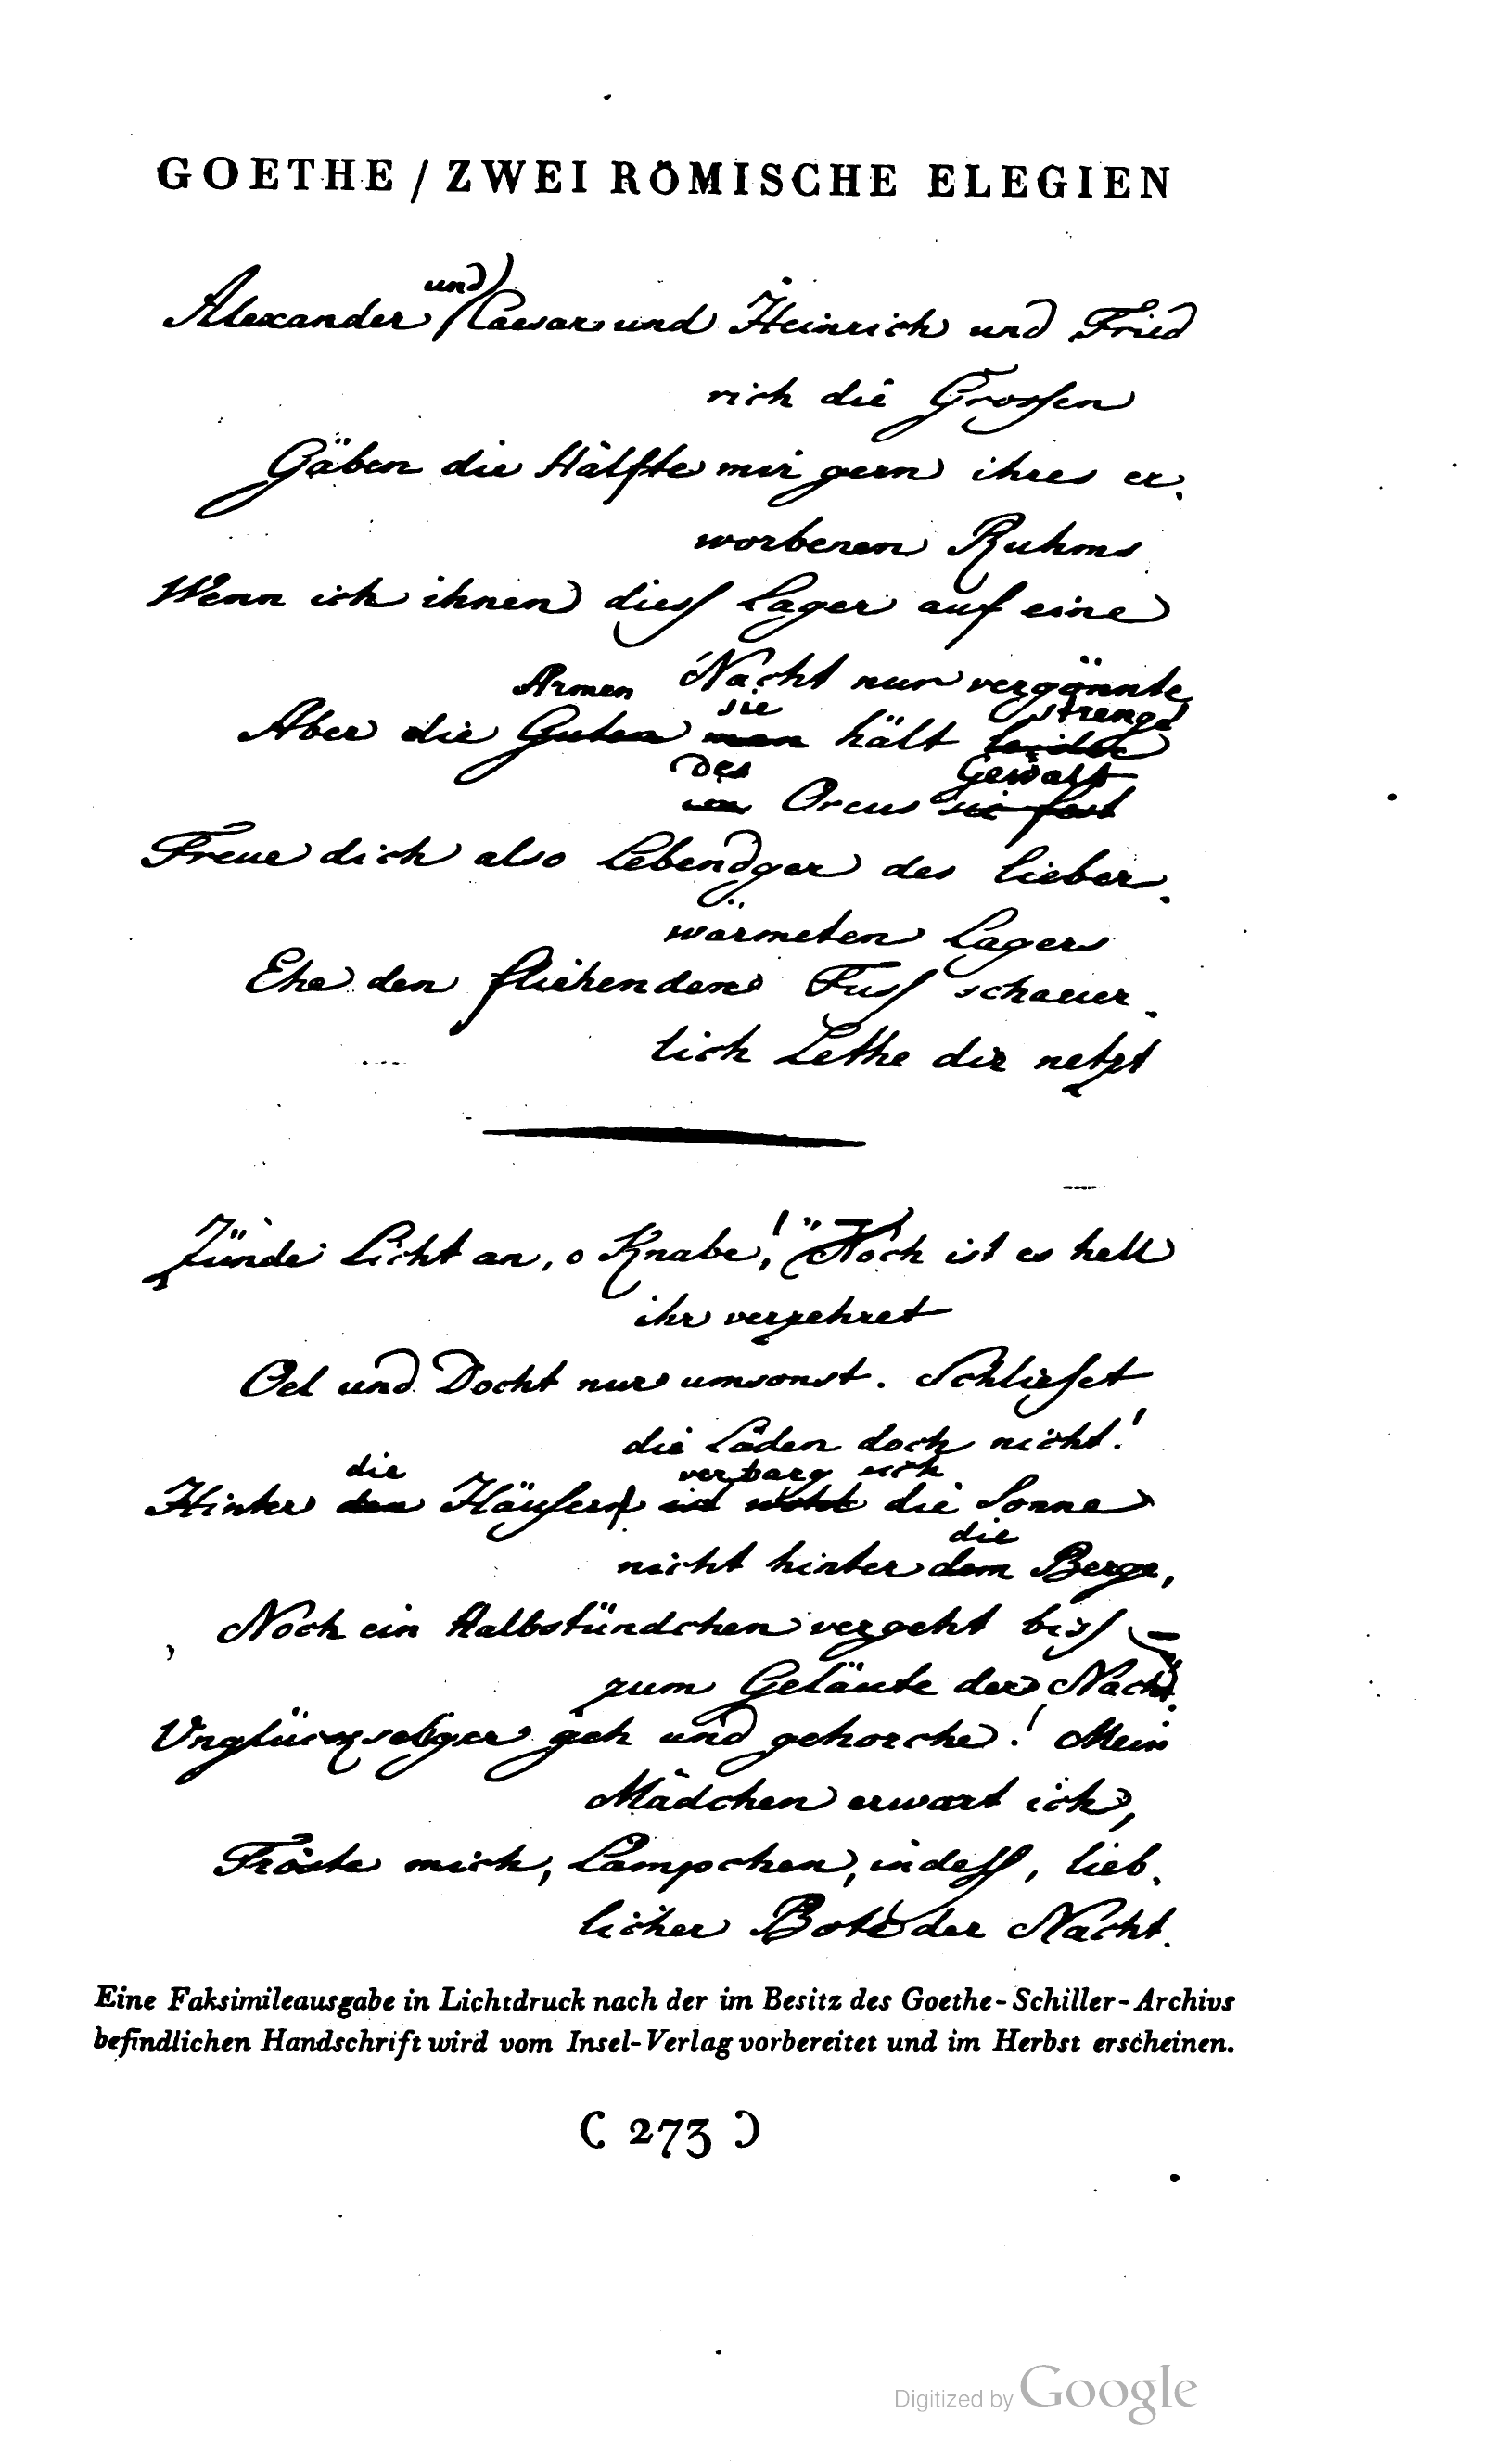 GOETHE / ZWEI RÖMISCHE ELEGIEN
und
Alexander Caesar und Heinrich und Fried
rich die Grossen
Gäben die Hälfte mir gern ihres er-
worbenen Ruhms
Wenn ich ihnen diess Lager auf eine
Nacht nur vergönnte
Armen sie strenge
Aber die Guten man hält leider
des Gewalt
im Orcus sie fest
Freue dich also Lebendger des lieber-
wärmeten Lagers
Ehe den fliehenden Fuss schauer-
lich Lethe dir netzt
Zünde Licht an, o Knabe! „Noch ist es hell
ihr verzehret
Oel und Docht nur umsonst. Schliesset
die Läden doch nicht!
die verbarg sich
Hinter den Häusern ist wohl die Sonne
die
nicht hinter dem Berge,
Noch ein Halbstündchen vergeht biss
zum Geläute der Nacht.
Unglückselger geh und gehorche! Mein
Mädchen erwart ich,
Tröste mich, Lämpchen, indess, lieb-
licher Bote der Nacht.
Eine Faksimileausgabe in Lichtdruck nach der im Besitz des Goethe-Schiller-Archivs
befindlichen Handschrift wird vom Insel-Verlag vorbereitet und im Herbst erscheinen.
( 273 )
Digitized by Google